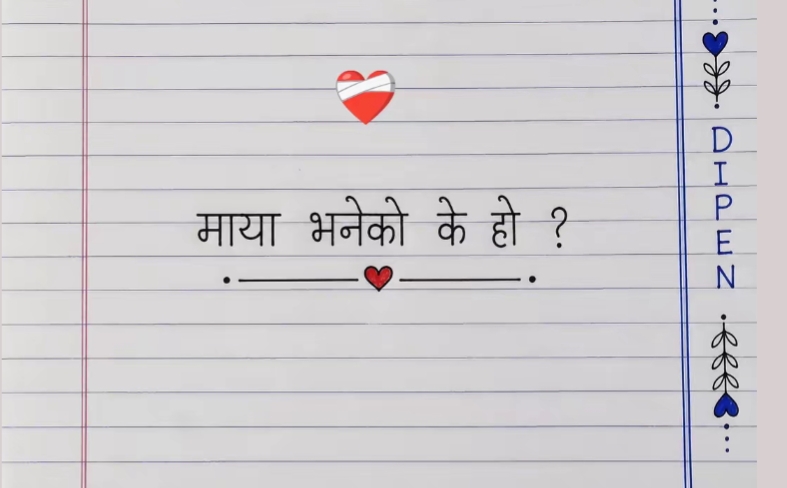 माया भनेको के हो ?
DIPEN